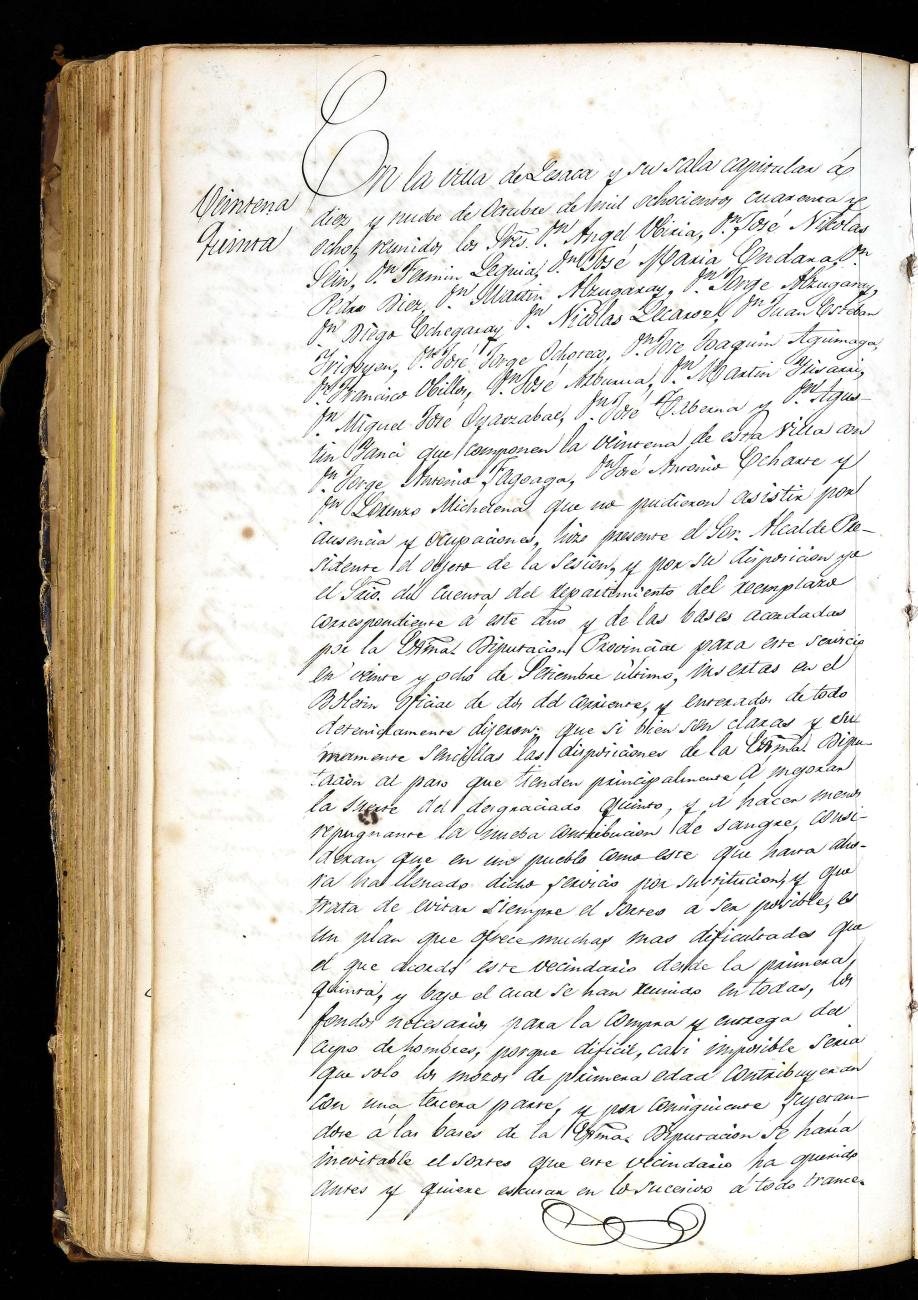 Veintena
Quinta
En la villa de Lesaca y su sala capitular á
diez y nuebe de Octubre de mil ochocientos cuarenta y
ocho, reunidos los Sres. Dn. Angel Vicia, Dn. José Nikolas
Sein, Dn. Fermin Leguia, Dn. José Maria Endara, Dn.
Pedro Diez, Dn. Martin Alzugaray, Dn. Jorge Alzugaray,
Dn. Diego Echegaray Dn. Nicolas Lecaroz, Dn. Juan Esteban
Irigoyen, Dn. José Jorge Ochoteco, Dn. José Joaquin
Dn. Francisco Ubillos, Dn. José Alburua, Dn. Martin
Dn. Miguel José Oyarzabal, Dn. José Taberna y Dn. Agus-
tin Yanci que componen la veintena de esta Villa con
Dn. Jorge Antonio Fagoaga, Dn. José Antonio Echarte y
Dn. Lorenzo Michelena que no pudieron asistir por
ausencia y ocupaciones, hizo presente el Sor. Alcalde Pre-
sidente el objeto de la sesion, y por su disposicion yo
el Srio. di cuenta del repartimiento del reemplazo
correspondiente á este año y de las bases acordadas
por la Exma. Diputacion Provincial para este servicio
en veinte y ocho de Setiembre último, insertas en el
Boletin oficial de dos del corriente, y enterados de todo
detenidamente dijeron: que si bien son claras y su
mamente sencillas las disposiciones de la Exma. Dipu-
tacion al paso que tienden principalmente á mejorar
la suerte del desgraciado quinto, y á hacer menos
repugnante la nueba contribucion de sangre, consi-
deran que en un pueblo como este que hasta aho-
ra ha llenado dicho servicio por sustitucion, y que
trata de evitar siempre el sorteo á ser posible, es
un plan que ofrece muchas mas dificultades que
el que acordó este vecindario desde la primera,
quinta, y bajo el cual se han reunido en todas, los
fondos necesarios para la compra y entrega del
cupo de hombres, porque dificil, casi imposible seria
que solo los mozos de primera edad contribuyeran
con una tercera parte, y por consiguiente sujetan-
dose á las bases de la Exma. Diputacion se haria
inevitable el sorteo que este vecindario ha querido
antes y quiere escusar en lo sucesivo á todo trance.